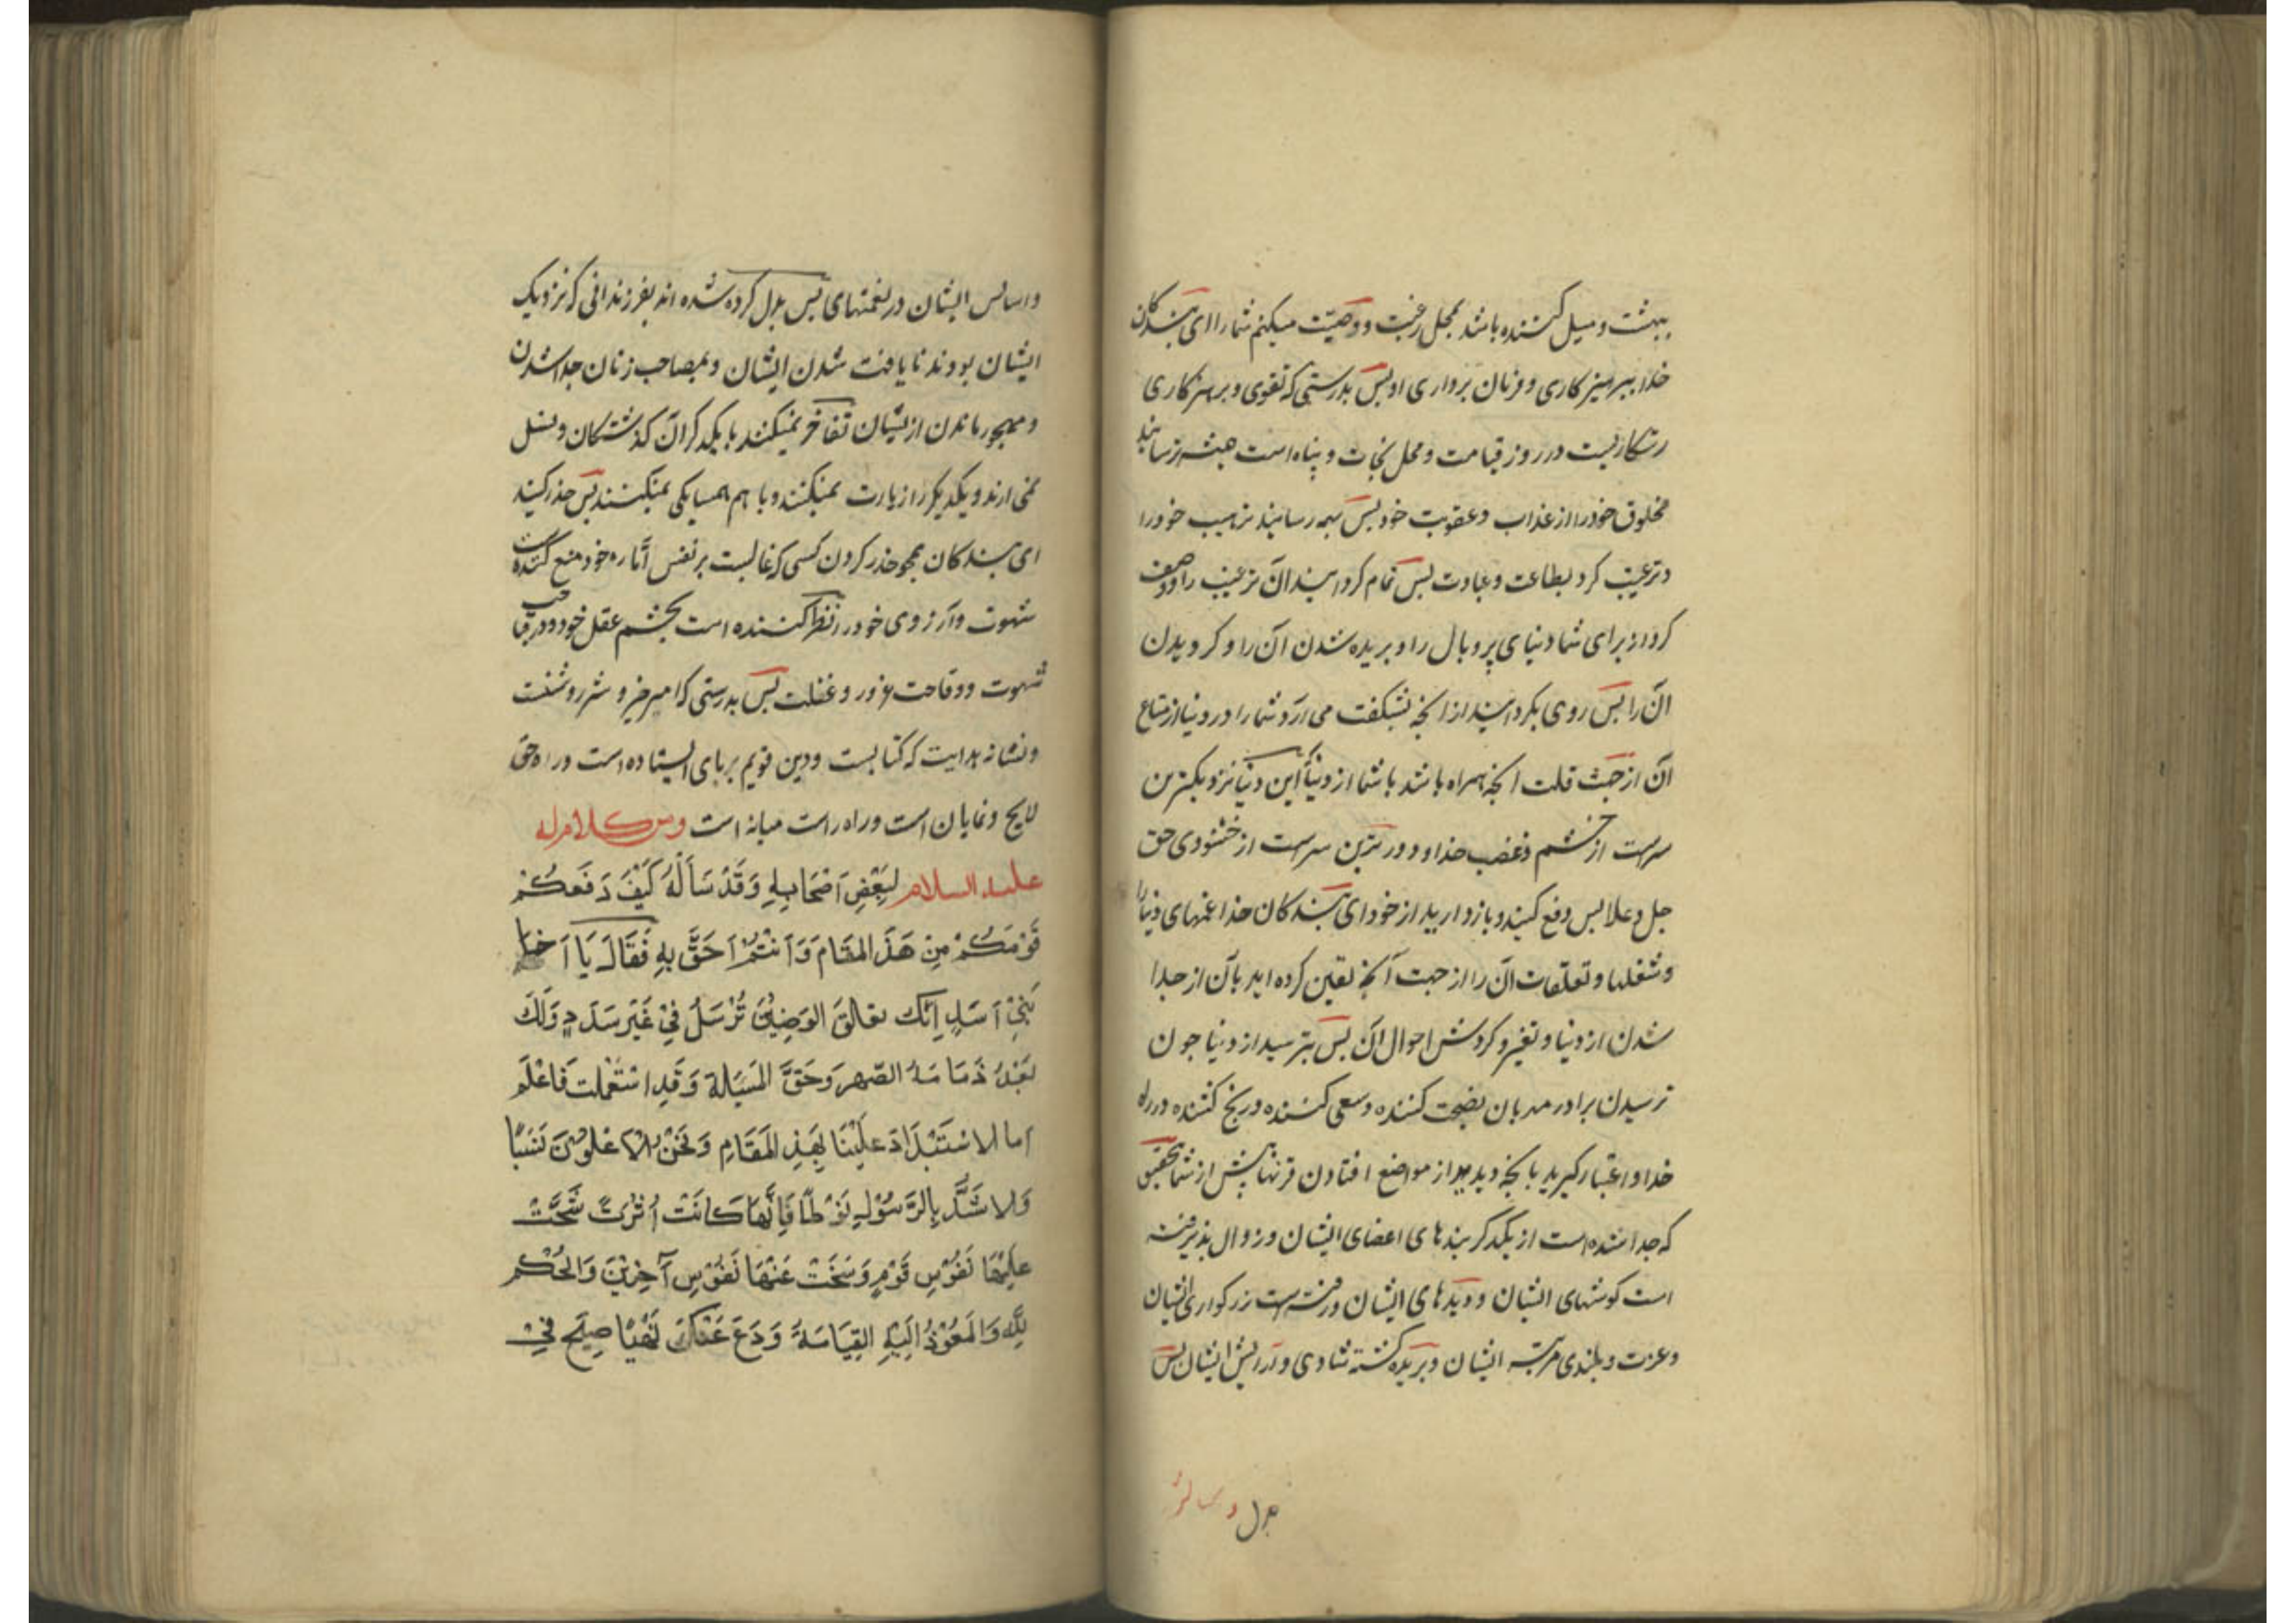 ببهشت و میل کننده باشد بمحل رغبت و وصیّت میکنم شما را ای بندکان
خدا ببرهیزکاری و فرمان برداری او بس بدرستی که تقوی و برهیزکاری
رستکاریست در روز قیامت و محل نجات و پناه است همیشه ترسانید
مخلوق خود را از عذاب و عقوبت خود بس بهم رسانید ترهیب خود را
و ترغیب کرد بطاعت و عبادت بس تمام کردانید ان ترغیب را و وصف
کرد از برای شما دنیای پر وبال را و بریده شدن آن را و کرویدن
ان را بس روی بکردانید از انچه بشکفت می ارد شما را در دنیا از متاع
ان از جهت قلت انچه همراه باشد با شما از دنیا این دنیا نزدیکترین
سراست از خشم و غضب خدا و دورترین سراست از خشنودی حق
جل و علا بس دفع کنید و بازدارید از خود ای بندکان خدا غمهای دنیا را
و شغلها و تعلقات ان را از جهت آنچه یقین کرده اید بآن از جدا
شدن از دنیا و تغیر و کردش احوال ان بس بترسید از دنیا جون
ترسیدن برادر مهربان نصیحت کننده و سعی کننده و رنج کشنده در راه
خدا و اعتبار کیرید بانچه دیدید از مواضع افتادن قرنها پیش از شما بتحقیق
که جدا شده است از یکدکر بندهای اعضای ایشان و زوال پذیرفته
است کوشهای ایشان و دیدهای ایشان و رفته است بزرکواری ایشان
و عزت و بلندی مرتبه ایشان و بریده کشته شادی و آرایش ایشان بس
بدل
واسایس ایشان در نعمتهای بس بدل کرده شده اند بفرزندانی که نزدیک
ایشان بودند نایافت شدن ایشان و بمصاحب زنان جدا شدن
و مهجور ماندن از یشان تفاخر نمیکنند با یکدکر ان کذشتکان و نسل
نمی ارند و یکدیکر را زیارت نمیکنند و با هم همسایکی نمیکنند بس حذر کنید
ای بندکان همجو حذر کردن کسی که غالبست بر نفس اماره خود منع کننده است
شهوت و آرزوی خود را نظر کننده است بچشم عقل خود در قباحت
شهوت و وقاحت غرور و غفلت بس بدرستی که امر خیر و شر روشنست
و نشانه هدایت که کتابست و دین قویم برپای ایستاده است و راه حق
لایح و نمایان است و راه راست میانه است ومن کلام له
علیه السلام لِبَعْضِ اَصْحَابِهِ وَقَدْ سَأَلَهُ كَيْفَ دَفَعَكُمْ
قَوْمَكُمْ مِنْ هَذَ المَقَامِ وَاَنْتُمْ اَحَقُّ بِهِ فَقَالَ يَا اَخَا
بَنِي اَسَدٍ اِنَّكَ لقلق الوَضِيْن تُرْسِلُ فِي غَيْرِ سَدَدٍ وَلَكَ
بَعْدُ ذَمَامَهُ الصّهر وَحَقَّ المَسْئَلة وَقَدِ اسْتَعْلمت فَاعْلَم
اما الاسْتَبْدَادَ عَلَيْنَا بِهَذِ المَقَامِ وَنَحْنُ الاَعْلَوْنَ نَسَبًا
وَالاشَدُّ بِالرَّسُوْلِ نَوْطًا فَاِنَّهَا كَانَتْ اُثْرَةً شَحَّتْ
عَلَيْهَا نُفُوْس قَوْمٍ وَسَخَتْ عَنْهَا نُفُوْس آخِرِيْنَ وَالحَكَمُ
لِلّه وَالمَعْوَدُ اِلَيْهِ القِيَامَةُ وَدَعْ عَنْكَ نَهْبًا صِيْحَ فِي